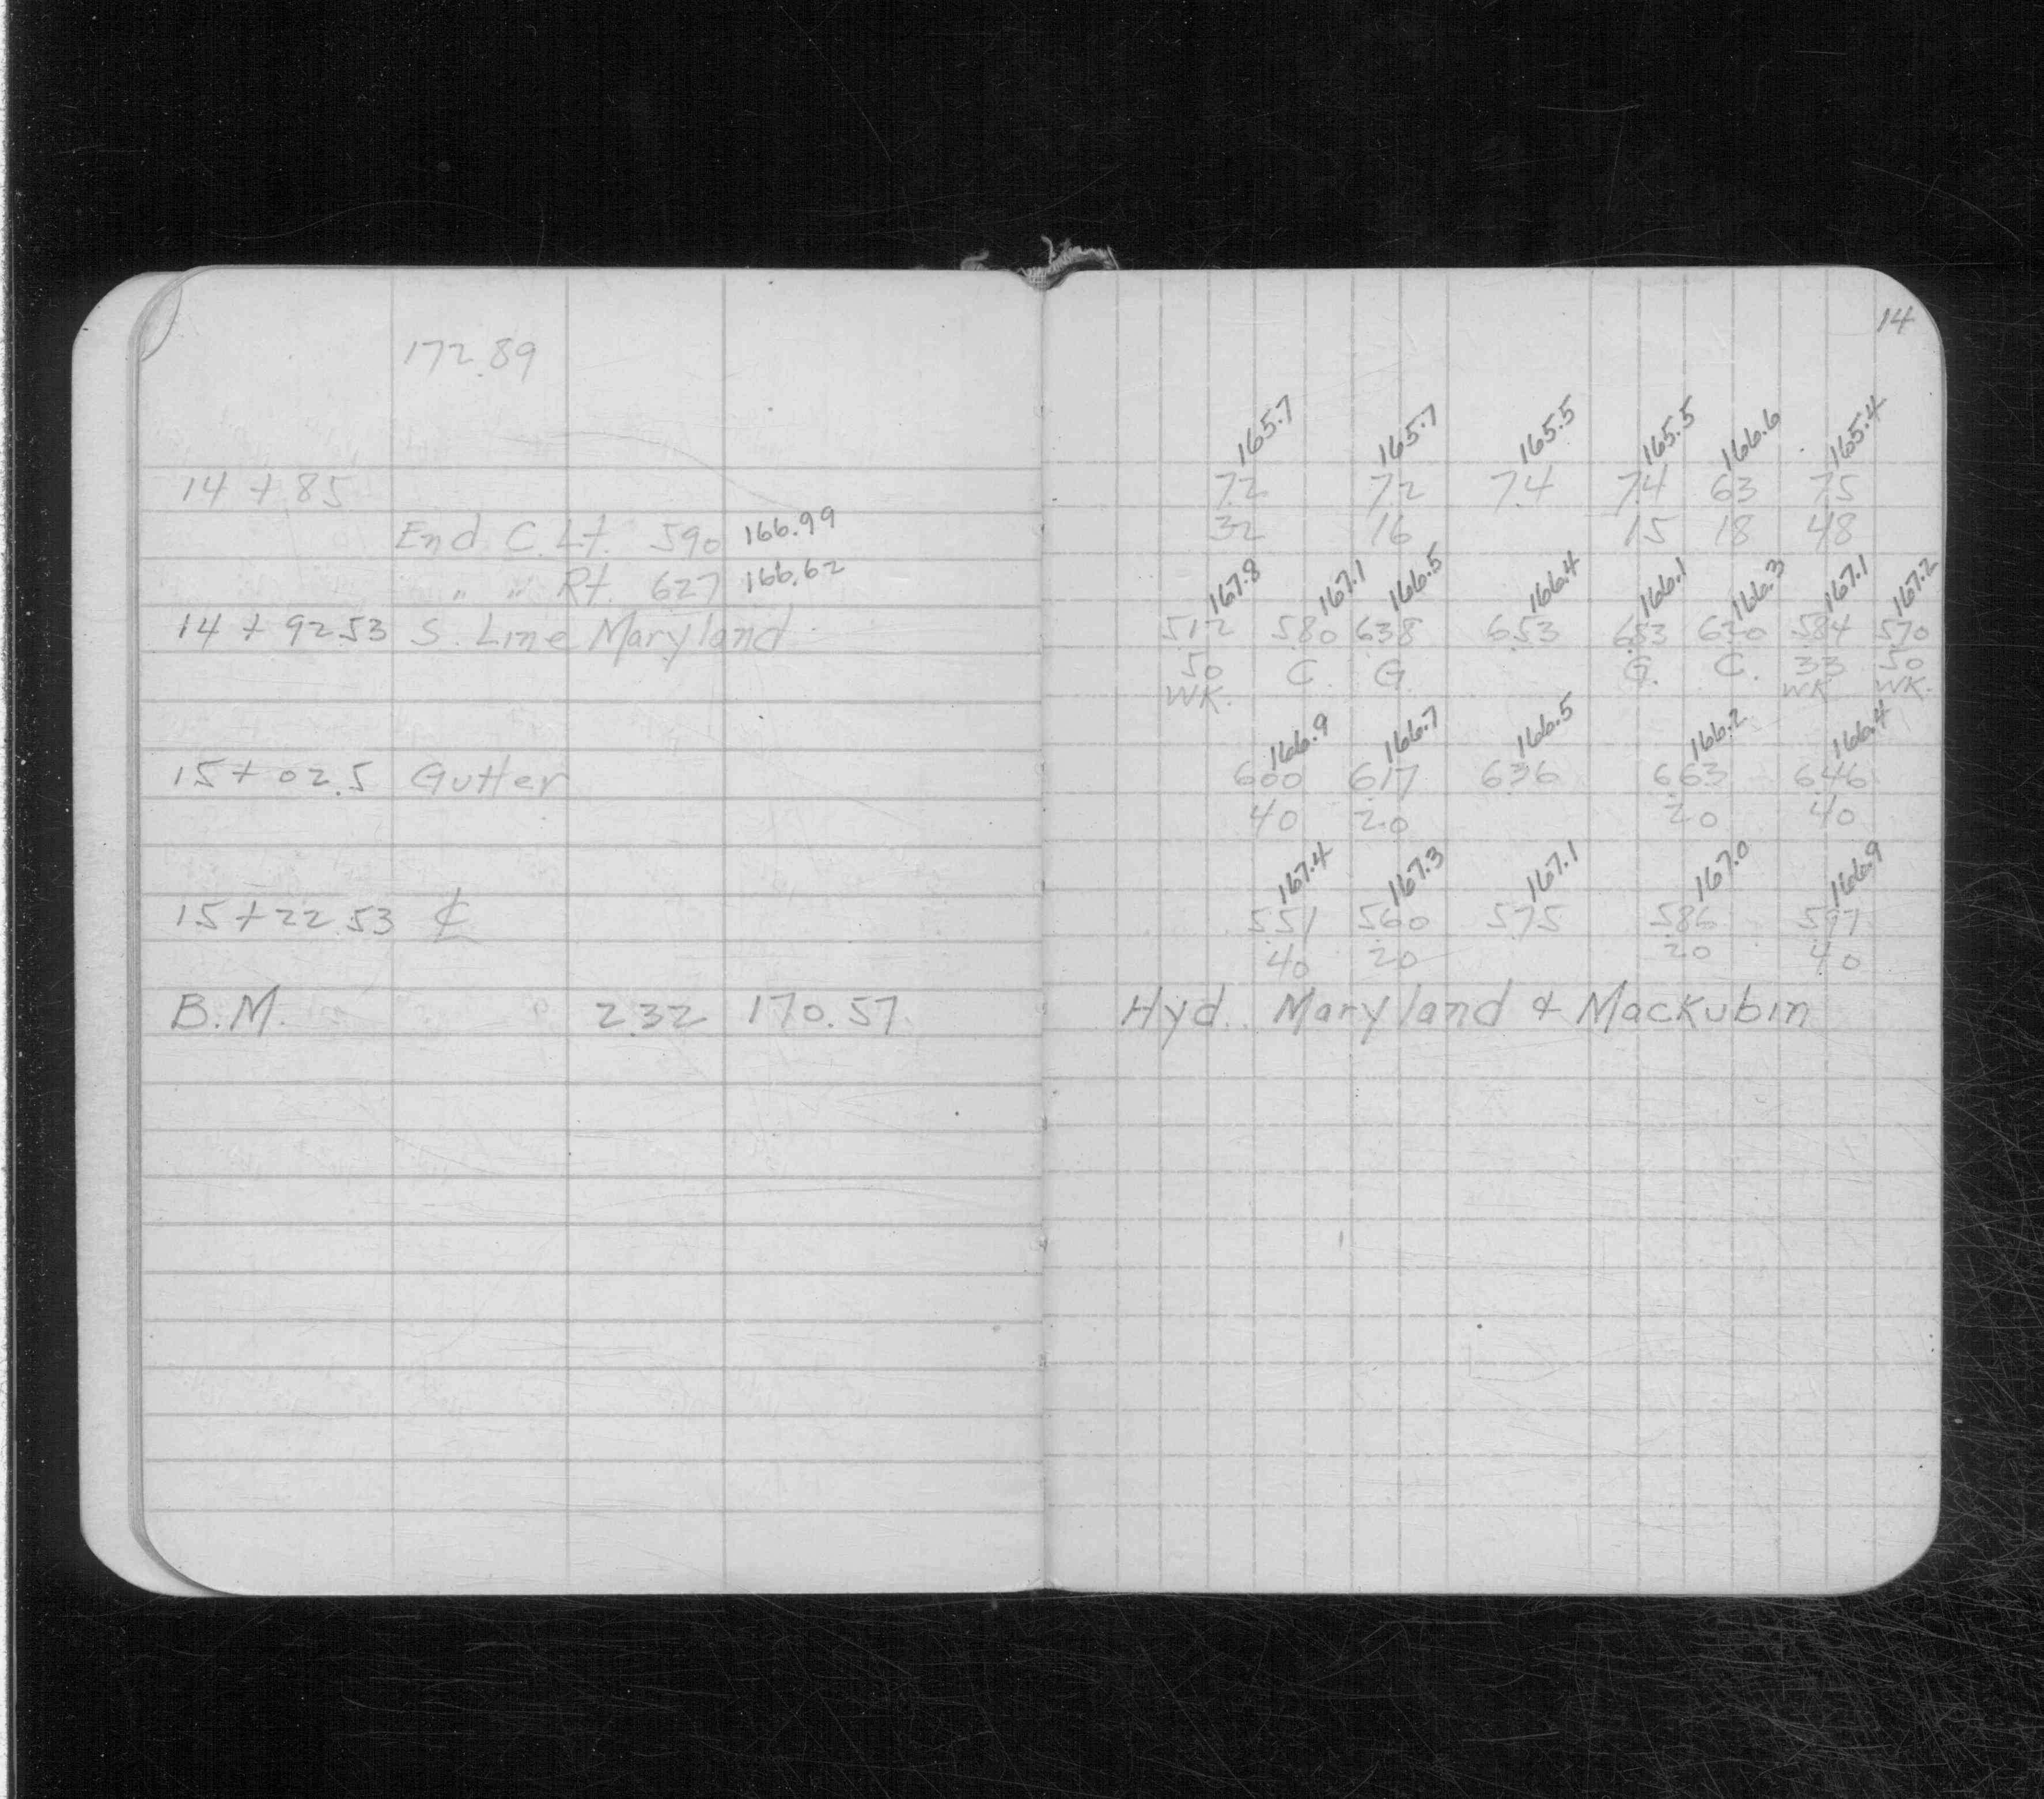 172.89
14 + 85
End C. Lt. 590 166.99
" " Rt. 627 166.62
14 + 92.53 S. Line Maryland
15 + 02.5 Gutter
15 + 22.53 ℄
B.M. 2.32 170.57
14
165.7 165.7 165.5 165.5 166.6 165.4
72 72 7.4 74 63 75
32 16 15 18 48
167.8 167.1 166.5 166.4 166.1 166.3 167.1 167.2
512 580 638 653 683 620 584 570
50 C. G. G. C. 33 50
WK. WK WK.
166.9 166.7 166.5 166.2 166.4
600 617 636 663 646
40 20 20 40
167.4 167.3 167.1 167.0 166.9
551 560 575 586 597
40 20 20 40
Hyd. Maryland & Mackubin